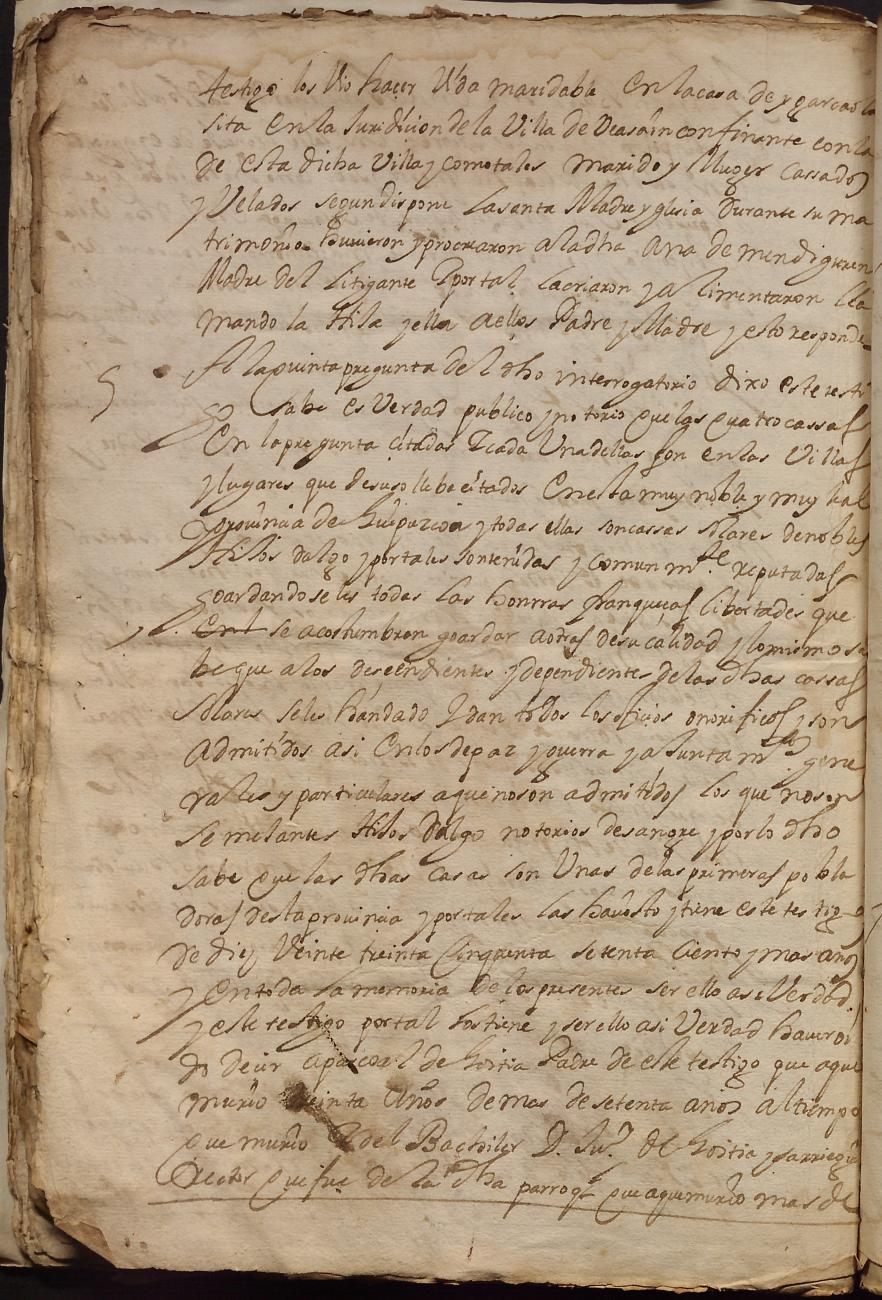 testigo los Vio hacer Vida maridable En la casa de ygarçaola
sita En la Juridicion de la Villa de Veasain confinante con la
de esta dicha Villa y como tales marido y Muger Cassados
y Velados segun dispone la santa Madre yglesia Durante su ma
trimonio huuieron y procrearon a la dha Ana de mendiguren
Madre del litigante y por tal la criaron y alimentaron lla
mando la Hija y ella a ellos Padre y Madre y esto responde
5 A la quinta pregunta del dho interrogatorio dixo este testi
go sabe es Verdad publico y notorio que las quatro cassas
En la pregunta citadas y cada Una dellas son en las Villas
y lugares que de suso lleba citados En esta muy noble y muy leal
Provincia de Guipuzcoa y todas ellas son cassas solares de nobles
Hijos dalgo y por tales tenidas y comunmte reputadas
goardandoseles todas las honrras franqueças libertades que
se acostumbran goardar a otras de su calidad y lo mismo sa
be que a los deçendientes y dependientes de las dhas cassas
solares se les han dado y dan todos los ofiçios onorificos y son
admitidos asi en los de paz y guerra y a Juntamtos gene
rales y particulares a que no son admitidos los que no son
semejantes Hijos dalgo notorios de sangre y por lo dho
sabe que las dhas casas son Unas de las primeras pobla
doras desta provincia y por tales las ha visto y tiene este testigo
de diez Veinte treinta Cinquenta setenta Ciento y mas años
y En toda la memoria de los presentes ser ello asi Verdad
y este testigo por tal los tiene y ser ello asi Verdad hauer oi
do deçir a pascoal de hoitia Padre de este testigo que a que
murio treinta Años de mas de setenta años al tiempo
que murio y del Bachiler D. Jun de hoitia y sarriegui
Rector que fue de la dha parroql que a que murio mas de